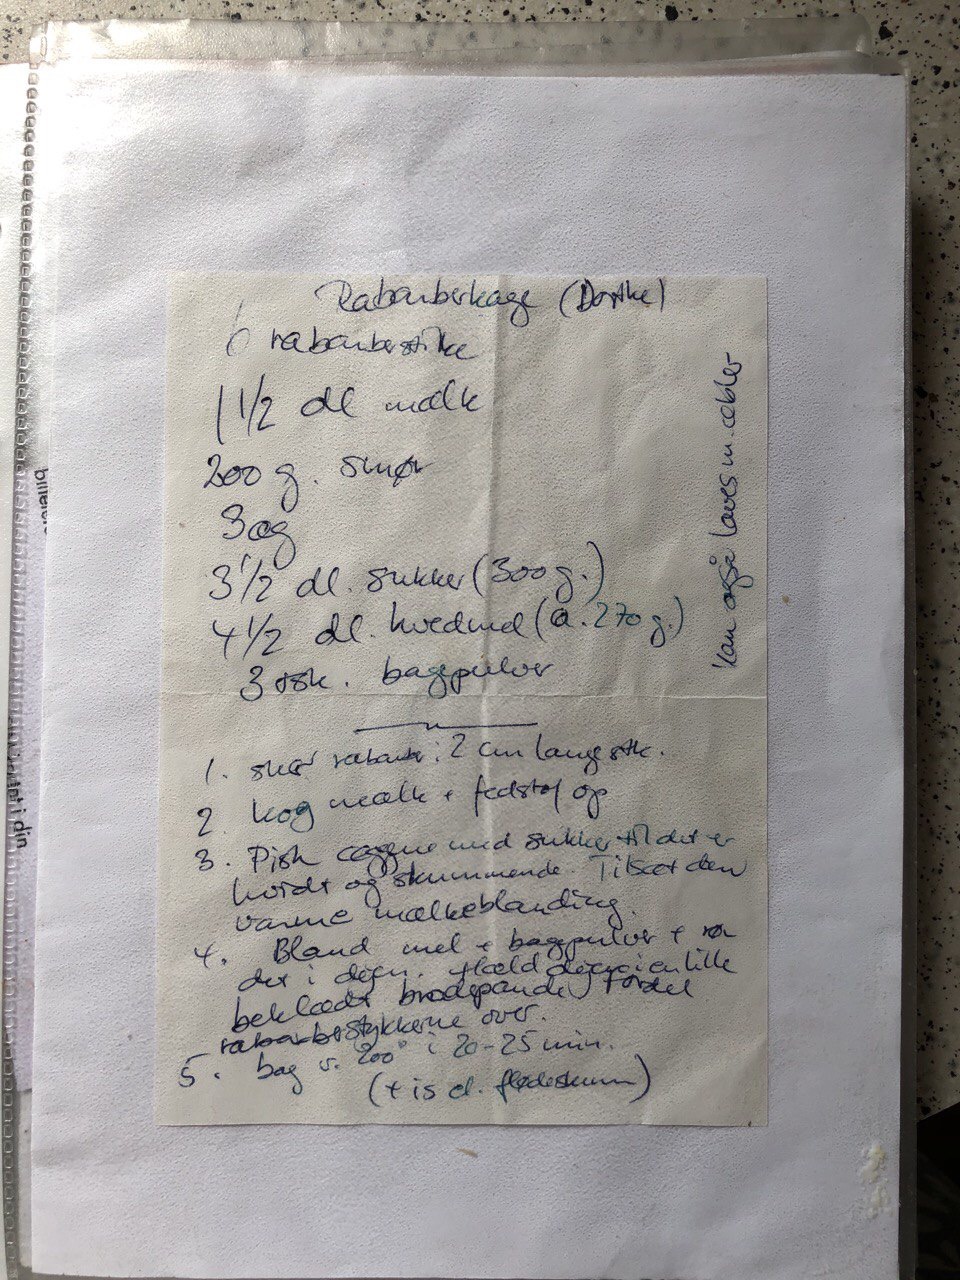 Rabarberkage (Dorthe)
6 rabarberstilke
1 1/2 dl mælk
200 g. smør
3 æg
3 1/2 dl. sukker (300 g.)
4 1/2 dl. hvedmel (a. 270 g.)
3 tsk. bagepulver
Kan også laves m. æbler
1. skær rabarber i 2 cm lange stk.
2 kog mælk + fedstof op
3. Pisk æggene med sukker til det er
hvidt og skummende. Tilsæt den
varme mælkeblanding.
4. Bland mel + bagepulver + rør
det i dejen. Hæld dejen i en lille
beklædt bradepande. Fordel
rabarberstykkerne over.
5. bag v. 200° i 20-25 min.
(+ is el. flødeskum)
billetens
din